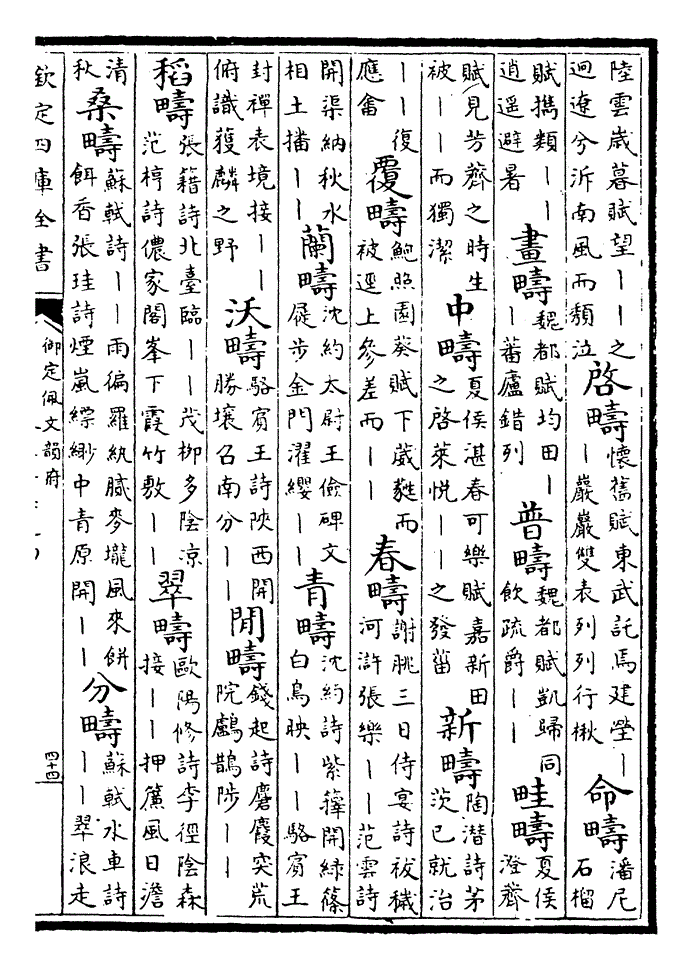 陸雲歲暮賦望丨丨之迥遼兮泝南風而頹泣 啓疇 懷舊賦東武託焉建塋丨丨巖巖雙表列列行楸 命疇 潘尼石榴
賦擕類丨丨逍遥避暑 畫疇 魏都賦均田丨丨蕃廬錯列 普疇 魏都賦凱歸同飲疏爵丨丨 畦疇 夏侯澄薺
賦見芳薺之時生被丨丨而獨潔 中疇 夏侯湛春可樂賦嘉新田之啓萊悅丨丨之發菑 新疇 陶潛詩茅茨已就治
丨丨復應畬 覆疇 鮑照園葵賦下葳蕤而被逕上參差而丨丨 春疇 謝朓三日侍宴詩祓穢河滸張樂丨丨范雲詩
開渠納秋水相土播丨丨 蘭疇 沈約太尉王儉碑文屣步金門濯纓丨丨 青疇 沈約詩紫籜開綠篠白鳥映丨丨駱賓王
封禪表境接丨丨俯識獲麟之野 沃疇 駱賓王詩陝西開勝壤召南分丨丨 閒疇 錢起詩麏麚突荒院鸕鶿陟丨丨
稻疇 張籍詩北臺臨丨丨茂柳多陰凉范梈詩儂家閣峯下霞竹敷丨丨 翠疇 歐陽修詩李徑陰森接丨丨押簾風日澹
清秋 桑疇 蘇軾詩丨丨雨徧羅紈膩麥壠風來餅餌香張珪詩煙嵐縹緲中青原開丨丨 分疇 蘇軾水車詩丨丨翠浪走
欽定四庫全書
御定佩文韻府
四十四